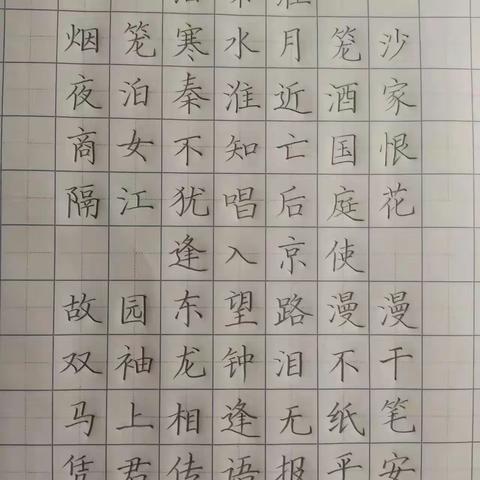 烟笼寒水月笼沙
夜泊秦淮近酒家
商女不知亡国恨
隔江犹唱后庭花
逢入京使
故园东望路漫漫
双袖龙钟泪不干
马上相逢无纸笔
凭君传语报平安